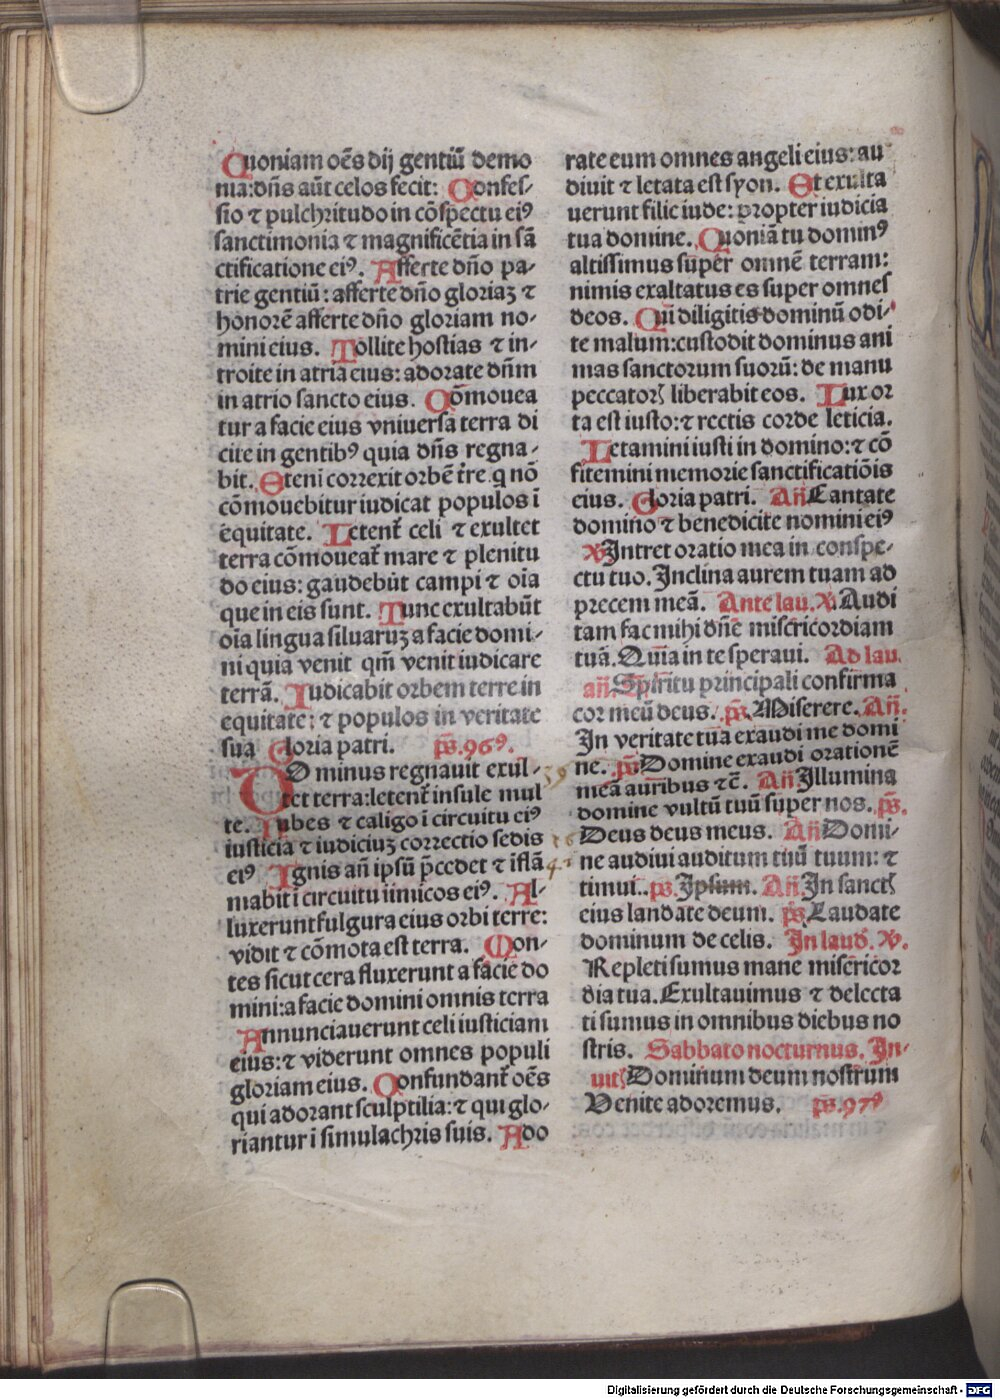 Quoniam oēs dij gentiū demo
nia: dn̄s aūt celos fecit: Confes-
sio ⁊ pulchritudo in cōspectu eiꝰ
sanctimonia ⁊ magnificētia in sā
ctificatione eiꝰ. Afferte dn̄o pa-
trie gentiū: afferte dn̄o gloriaʒ ⁊
honorē afferte dn̄o gloriam no-
mini eius. Tollite hostias ⁊ in-
troite in atria eius: adorate dn̄m
in atrio sancto eius. Cōmouea
tur a facie eius vniuersa terra di
cite in gentibꝰ quia dn̄s regna-
bit. Eteni correxit orbē t̄re q nō
cōmouebitur iudicat populos ī
equitate. Letent̄ celi ⁊ exultet
terra cōmoueat̄ mare ⁊ plenitu
do eius: gaudebūt campi ⁊ oīa
que in eis sunt. Tunc exultabūt
oīa lingua siluaruʒ a facie domi-
ni quia venit qm̄ venit iudicare
terrā. Iudicabit orbem terre in
equitate: ⁊ populos in veritate
sua Gloria patri. p̄s. 96ꝰ.
DOminus regnauit exul-
tet terra: letent̄ insule mul
te. Nubes ⁊ caligo ī circuitu eiꝰ
iusticia ⁊ iudiciuʒ correctio sedis
eiꝰ Ignis an̄ ipsū p̄cedet ⁊ iflā
mabit ī circuitu iimicos eiꝰ. Al-
luxerunt fulgura eius orbi terre:
vidit ⁊ cōmota est terra. Mon-
tes sicut cera fluxerunt a facie do
mini: a facie domini omnis terra
Annunciauerunt celi iusticiam
eius: ⁊ viderunt omnes populi
gloriam eius. Confundant̄ oēs
qui adorant sculptilia: ⁊ qui glo-
riantur ī simulachris suis. Ado
rate eum omnes angeli eius: au
diuit ⁊ letata est syon. Et exulta
uerunt filie iude: propter iudicia
tua domine. Quoniā tu dominꝰ
altissimus super omnē terram:
nimis exaltatus es super omnes
deos. Qui diligitis dominū odi-
te malum: custodit dominus ani
mas sanctorum suorū: de manu
peccatoꝝ liberabit eos. Lux or
ta est iusto: ⁊ rectis corde leticia.
Letamini iusti in domino: ⁊ cō
fitemini memorie sanctificatiōis
eius. Gloria patri. An̄ Cantate
domino ⁊ benedicite nomini eiꝰ
℣ Intret oratio mea in conspe-
ctu tuo. Inclina aurem tuam ad
precem meā. Ante lau. ℣. Audi
tam fac mihi dn̄e misericordiam
tuā. Quia in te speraui. Ad lau.
an̄. Spiritu principali confirma
cor meū deus. p̄s. Miserere. An̄.
In veritate tua exaudi me domi
ne. p̄s. Domine exaudi orationē
meā auribus ⁊c̄. An̄ Illumina
domine vultū tuū super nos. p̄s.
Deus deus meus. An̄ Domi-
ne audiui auditum tuū tuum: ⁊
timui.. ps. Ipsum. An̄. In sanctꝭ
eius landate deum. p̄s. Laudate
dominum de celis. In laud. ℣.
Repleti sumus mane misericor
dia tua. Exultauimus ⁊ delecta
ti sumus in omnibus diebus no
stris. Sabbato nocturnus. In-
uitꝭ Dominum deum nostrum
Venite adoremus. p̄s. 97ꝰ
Digitalisierung gefördert durch die Deutsche Forschungsgemeinschaft - DFG